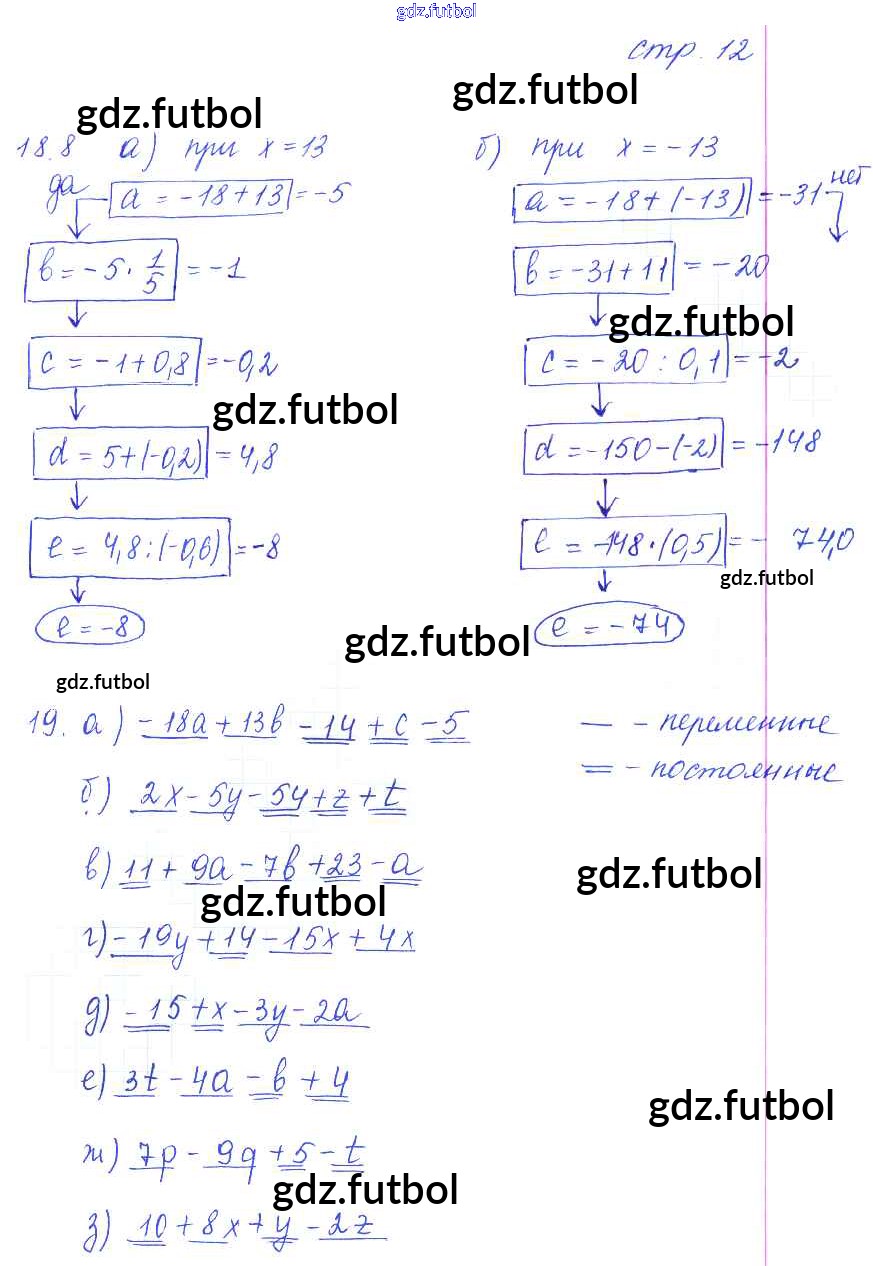 gdz.futbol
стр. 12
gdz.futbol
gdz.futbol
18.8 а) при x = 13
да
a = -18+13 = -5
b = -5 · 1/5 = -1
c = -1+0,8 = -0,2
gdz.futbol
d = 5+(-0,2) = 4,8
e = 4,8:(-0,6) = -8
e = -8
б) при x = -13
a = -18+(-13) = -31
нет
b = -31+11 = -20
gdz.futbol
c = -20 : 0,1 = -2
d = -150-(-2) = -148
e = -148·(0,5) = - 74,0
gdz.futbol
e = -74
gdz.futbol
gdz.futbol
19. а) -18a + 13b - 14 + c - 5
— - переменные
= - постоянные
б) 2x - 5y - 5y + z + t
в) 11 + 9a - 7b + 23 - a
gdz.futbol
gdz.futbol
г) -19y + 14 - 15x + 4x
д) -15 + x - 3y - 2a
е) 3t - 4a - b + 4
gdz.futbol
ж) 7p - 9q + 5 - t
gdz.futbol
з) 10 + 8x + y - 2z